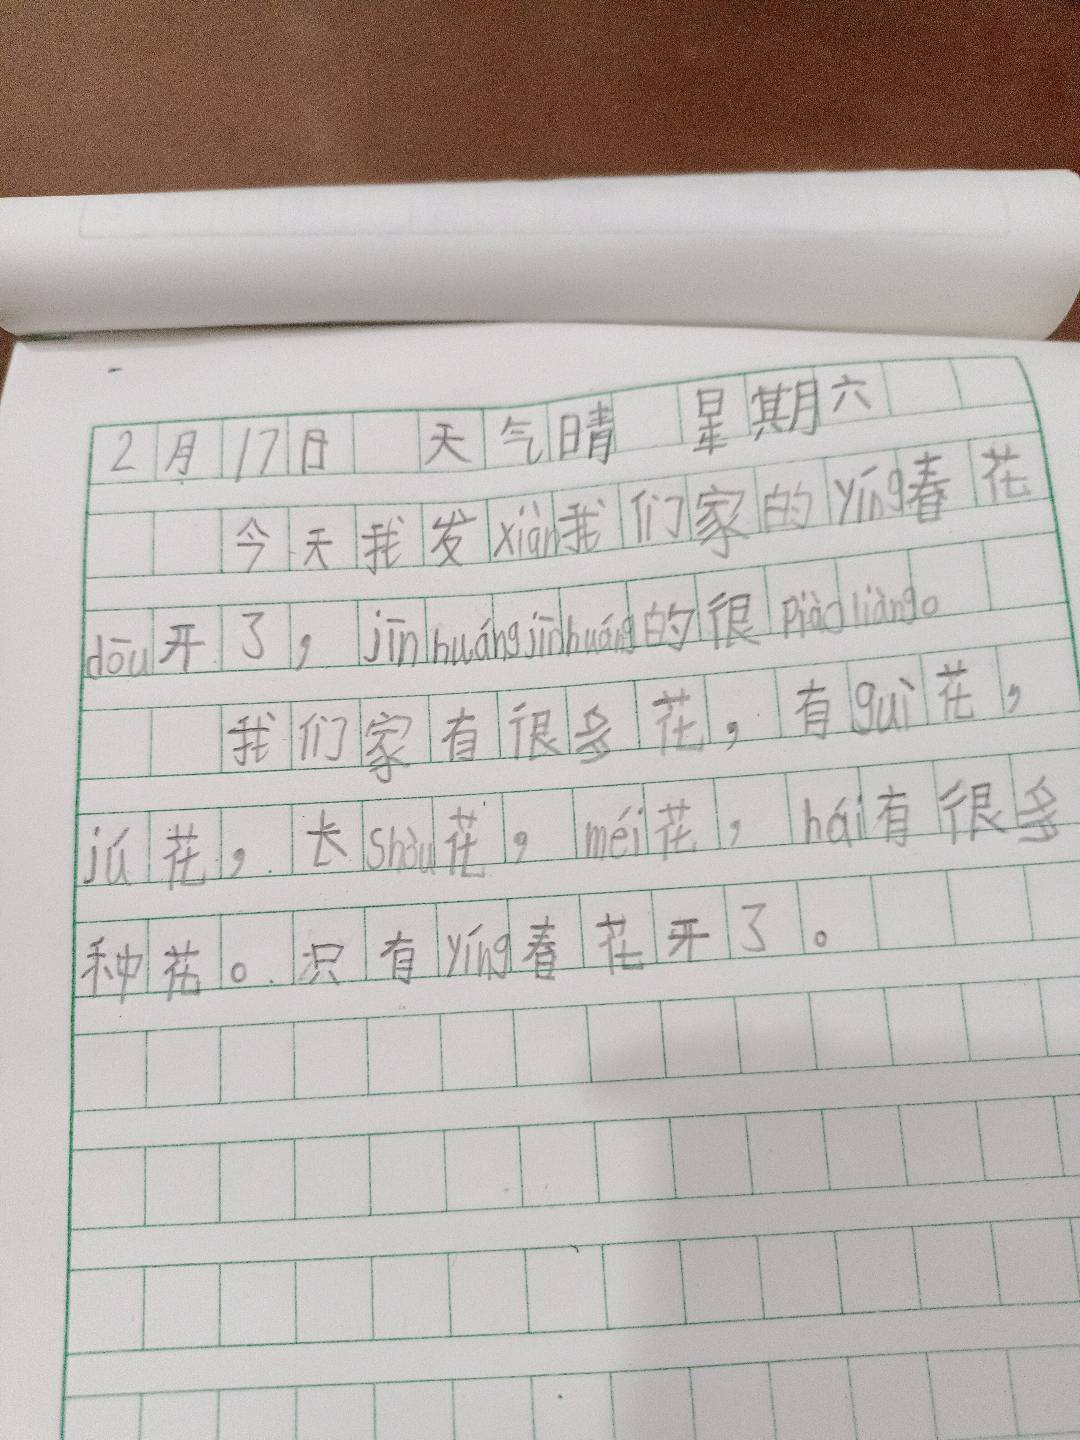 2月17日 天气晴 星期六
今天我发xiàn我们家的yíng春花
dōu开了，jīnhuángjīnhuáng的很piàoliàng。
我们家有很多花，有guì花，
jú花，长shòu花，méi花，hái有很多
种花。只有yíng春花开了。